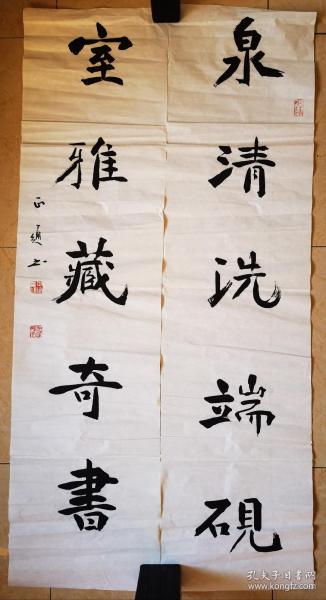 泉清洗端硯
室雅藏奇書
孔夫子旧书网
www.kongfz.com